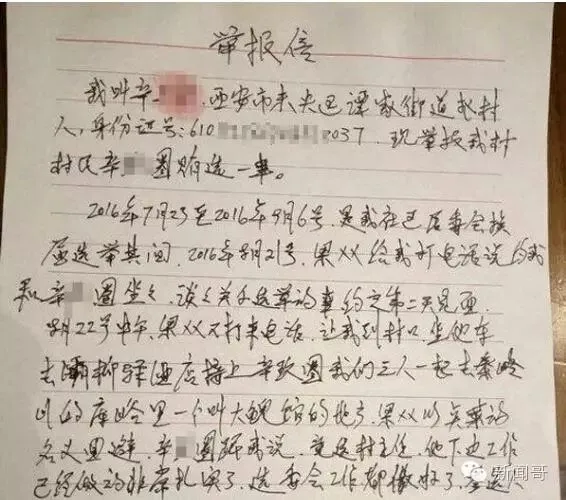 举报信
我叫辛 西安市未央区谭家街道 村
人,身份证号:610 037. 现举报我村
村民辛 圈贿选一事。
2016年7月23至2016年9月6号,是我在区居委会换
届选举其间,2016年8月21号,梁XX给我打电话说约我
和辛 圈坐坐,谈谈关于选举的事约定第二天见面,
8月22号中午,梁XX又打来电话,让我到村口坐他车
去灞柳驿酒店接上辛 圈我们三人一起去秦岭
山的库峪里一个叫大 的地方,梁XX以买菜的
名义回避,辛 圈跟我说,竞选村主任,他下边工作
已经做的非常扎实了,选委会工作都做好了,
新闻哥